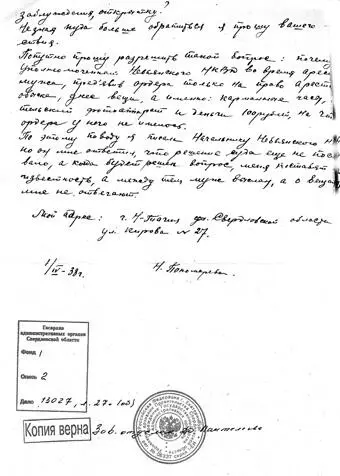 заблуждения, открытку?
Не зная куда больше обратиться я прошу вашего
Попутно прошу разрешить такой вопрос: почему
уполномоченный Невьянского НКВД во время арес
мужа, предъявив ордера только на право ареста
вещи, а именно: карманные часы,
фотоаппарат и деньги 100 рублей, на что
ордера у него не имелось.
По этому поводу я писала Начальнику Невьянского НК
но он мне ответил, что решение суда еще не пос
вало, а когда будет решен вопрос, меня поставят
известность, а между тем муж выслан, а о вещах
мне не отвечают.
Мой адрес: г. Н-Тагил Свердловской области
ул. Кирова № 27.
1/IV-38 г. Н. Пономарева
Госархив
административных органов
Свердловской области
Фонд 1
Опись 2
Дело 13027, л. 27 (об)
Копия верна
Зав. отделом